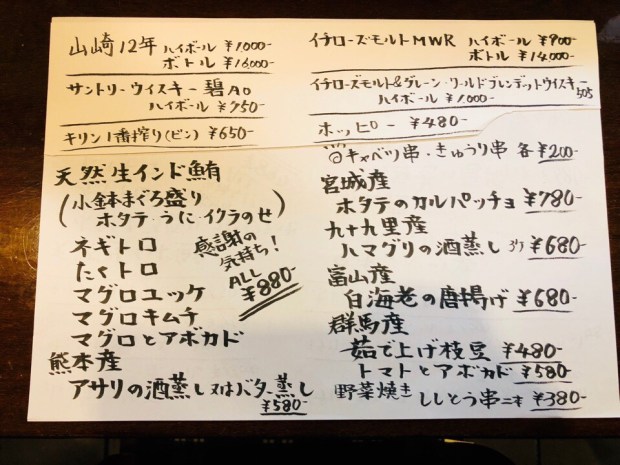 山崎12年 ハイボール ¥1,000-
ボトル ¥16,000-
サントリーウイスキー 碧Ao
ハイボール ¥750-
キリン1番搾り(ビン) ¥650-
天然生インド鮪
(小鉢まぐろ盛り
ホタテ・うに・イクラのせ)
ネギトロ
たくトロ
マグロユッケ
マグロキムチ
マグロとアボカド
感謝の
気持ち!
ALL
¥880-
熊本産
アサリの酒蒸し又はバター蒸し
¥580-
イチローズモルトMWR ハイボール ¥900-
ボトル ¥14,000-
イチローズモルト&グレーン・ワールドブレンデットウイスキー
505
ハイボール ¥1,000-
ホッピー ¥480-
◎キャベツ串・きゅうり串 各¥200-
宮城産
ホタテのカルパッチョ ¥780-
九十九里産
ハマグリの酒蒸し 3ケ ¥680-
富山産
白海老の唐揚げ ¥680-
群馬産
茹で上げ枝豆 ¥480-
トマトとアボカド ¥580-
野菜焼き ししとう串二本 ¥380-